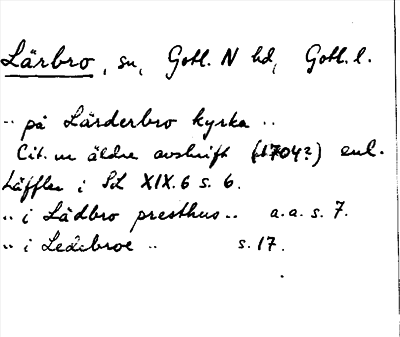 Lärbro, sn, Gotl. N hd, Gotl. l.
.. på Lärderbro kyrka ..
Cit. ur äldre avskrift (1704?) enl.
Läffler i SvL XIX.6 s. 6.
.. i Lädbro presthus .. a.a. s. 7.
.. i Ledebroe .. s. 17.